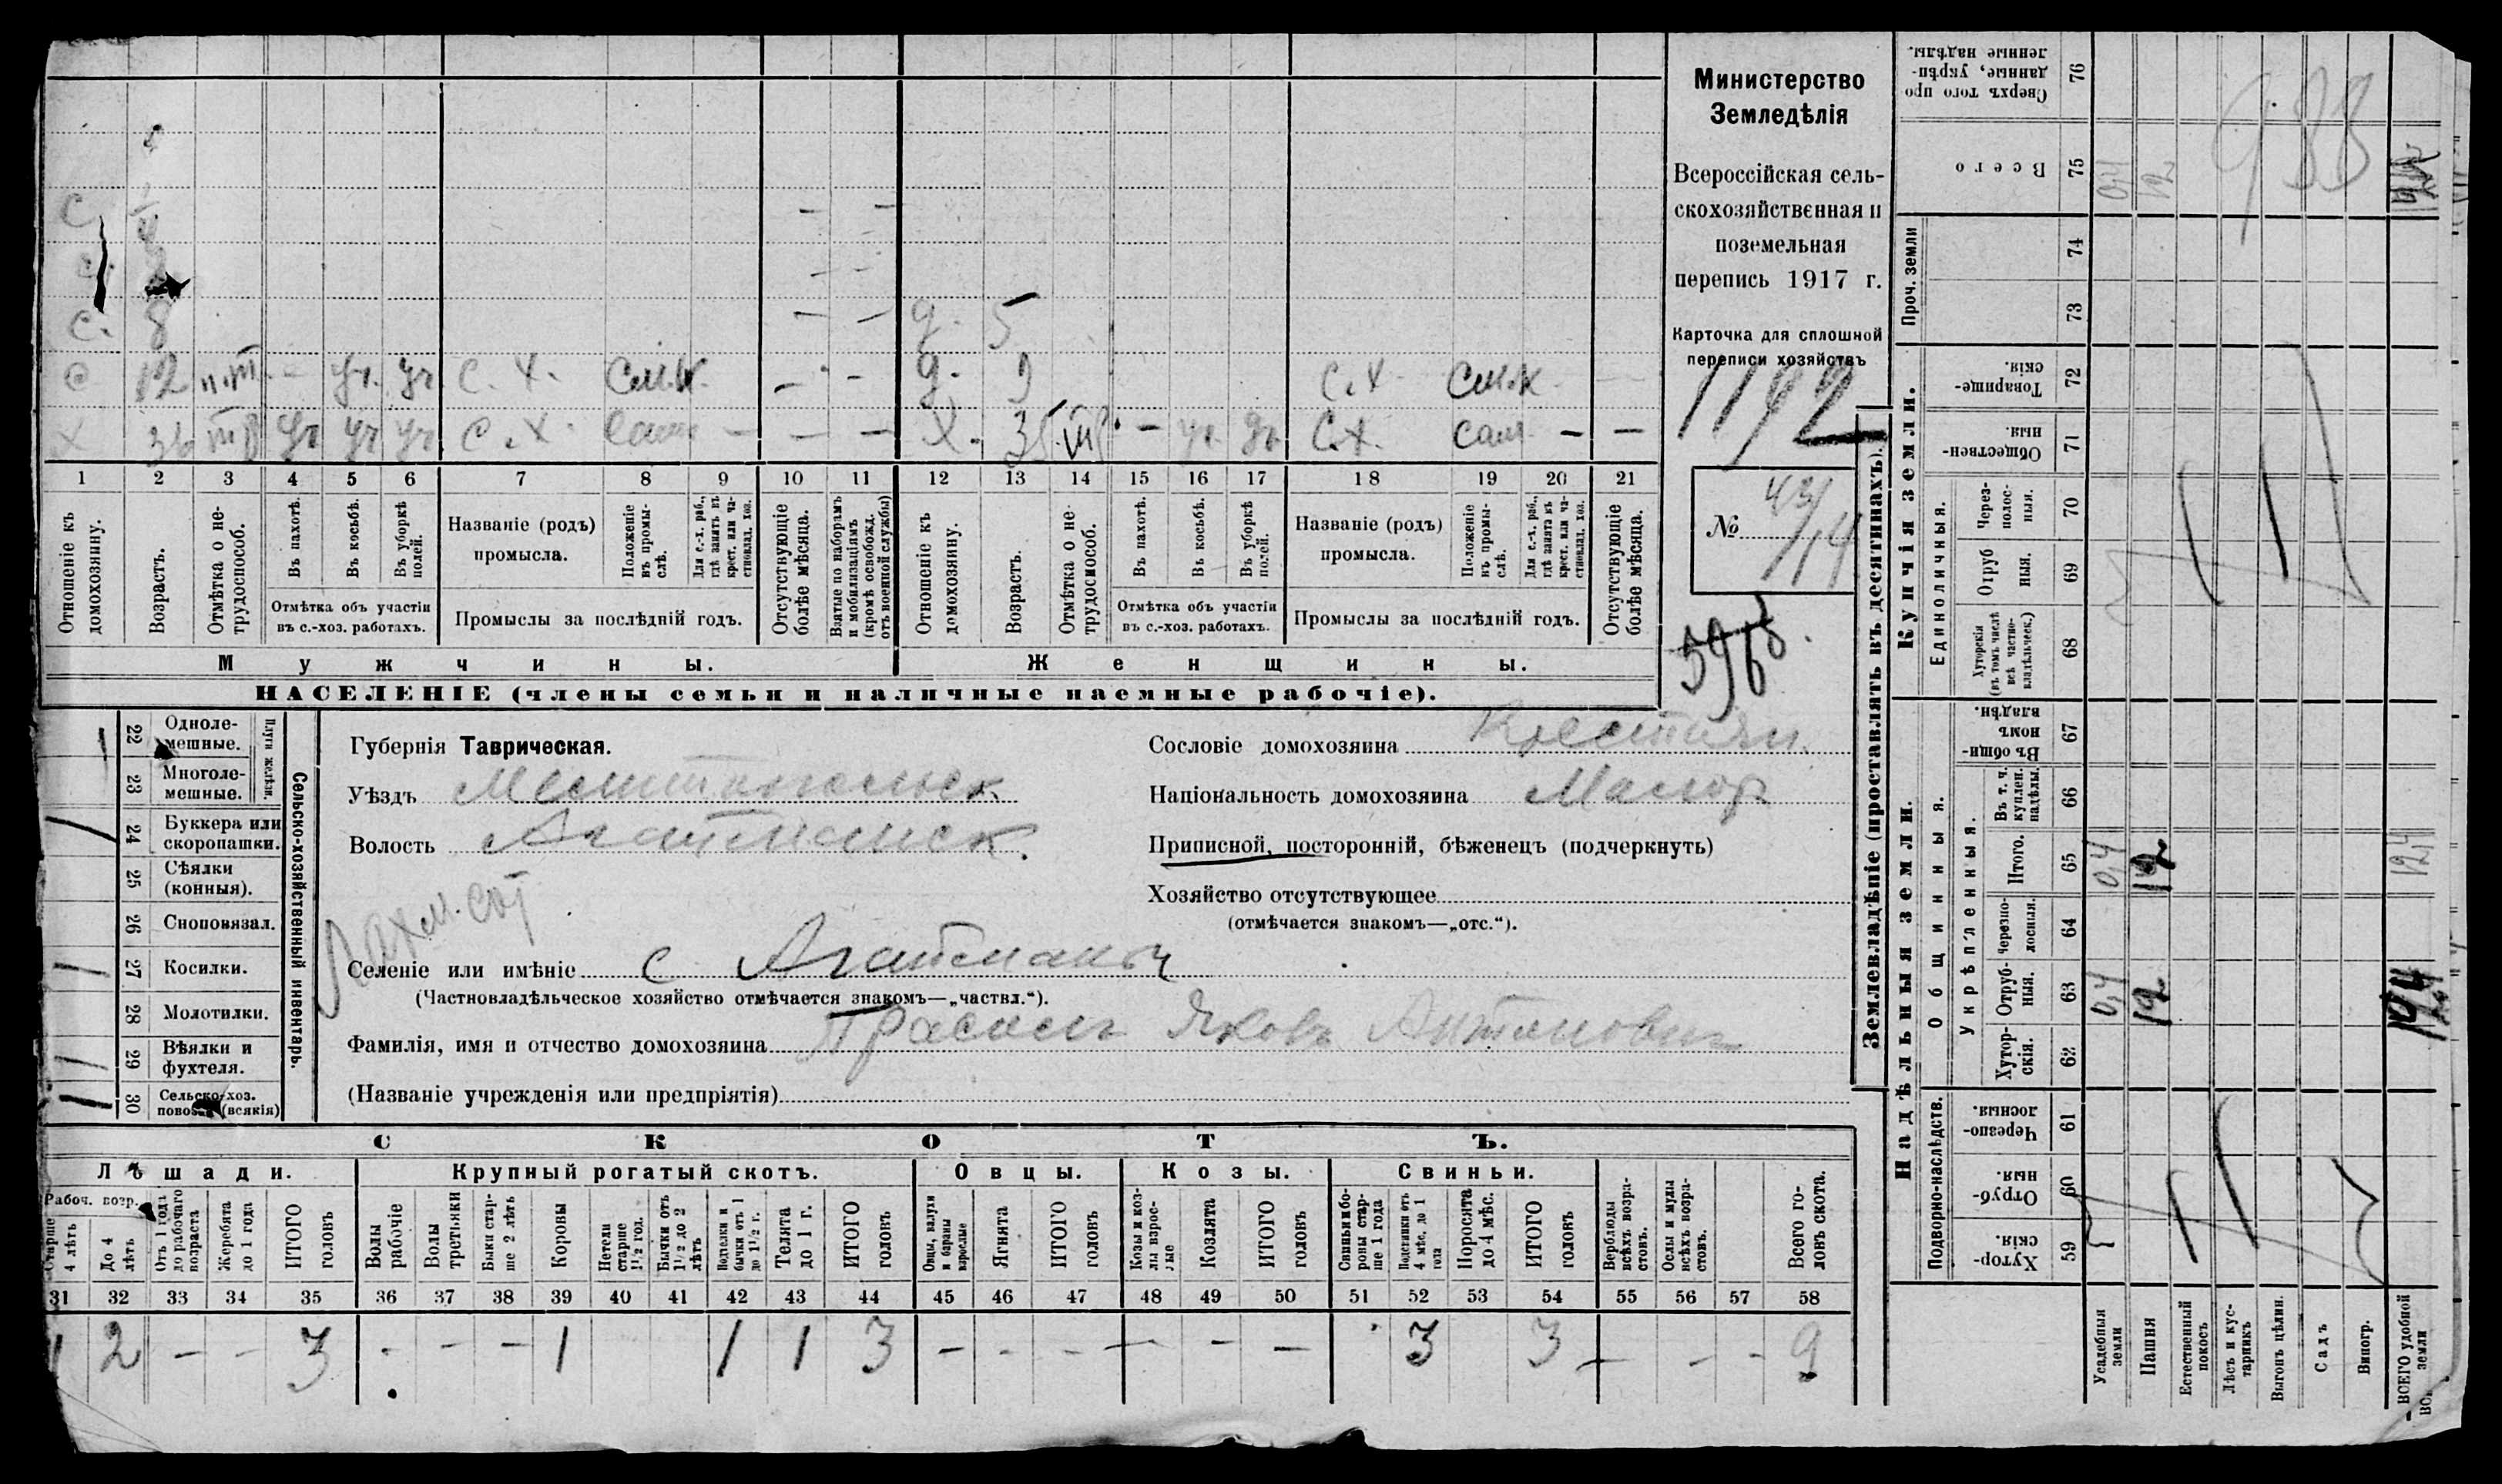 Министерство
Земледѣлія
Всероссійская сель-
скохозяйственная и
поземельная
перепись 1917 г.
Карточка для сплошной
переписи хозяйствъ
1192
№ 43/14
с. 8 — — д. 5
с 12 п.т. - уч. уч с. х. — — д. 9 с.х
х 36 уч уч уч с.х. сам — — — х. 35 — уч. уч с.х. сам — —
1 2 3 4 5 6 7 8 9 10 11 12 13 14 15 16 17 18 19 20 21
Отношеніе къ домохозяину.
Возрастъ.
Отмѣтка о не-трудоспособ.
Въ пахотѣ.
Въ косьбѣ.
Въ уборкѣ полей.
Отмѣтка объ участіи въ с.-хоз. работахъ.
Названіе (родъ) промысла.
Положеніе въ промы-слѣ.
Для с.-х. раб., гдѣ занятъ въ крест. или ча-стновлад. хоз.
Промыслы за послѣдній годъ.
Отсутствующіе болѣе мѣсяца.
Взятые по наборамъ и мобилизаціямъ (кромѣ освобожд. отъ военной службы)
Отношеніе къ домохозяину.
Возрастъ.
Отмѣтка о не-трудоспособ.
Въ пахотѣ.
Въ косьбѣ.
Въ уборкѣ полей.
Отмѣтка объ участіи въ с.-хоз. работахъ.
Названіе (родъ) промысла.
Положеніе въ промы-слѣ.
Для с.-х. раб., гдѣ занята въ крест. или ча-стновлад. хоз.
Промыслы за послѣдній годъ.
Отсутствующіе болѣе мѣсяца.
Мужчины. Женщины.
НАСЕЛЕНІЕ (члены семьи и наличные наемные рабочіе).
Сельско-хозяйственный инвентарь.
Плуги желѣзн.
22 Одноле-мешные.
23 Многоле-мешные.
24 Буккера или скоропашки.
25 Сѣялки (конныя).
26 Сноповязал.
27 Косилки.
28 Молотилки.
29 Вѣялки и фухтеля.
30 Сельско-хоз. (всякія)
Губернія Таврическая.
Уѣздъ Мелитопольск
Волость Агайманск.
Селеніе или имѣніе с Агайманы
(Частновладѣльческое хозяйство отмѣчается знакомъ—„частвл.“).
Фамилія, имя и отчество домохозяина Прасолъ Яковъ Антонович
(Названіе учрежденія или предпріятія)
Сословіе домохозяина Крестьян.
Національность домохозяина Малор
Приписной, посторонній, бѣженецъ (подчеркнуть)
Хозяйство отсутствующее
(отмѣчается знакомъ—„отс.“).
СКОТЪ.
Лошади. Крупный рогатый скотъ. Овцы. Козы. Свиньи.
Рабоч. возр.
Старше 4 лѣтъ
До 4 лѣтъ
Отъ 1 года до рабочаго возраста
Жеребята до 1 года
ИТОГО головъ
Волы рабочіе
Волы третьяки
Быки стар-ше 2 лѣтъ
Коровы
Нетели старше 1½ год.
Бычки отъ 1½ до 2 лѣтъ
Подтелки и бычки отъ 1 до 1½ г.
Телята до 1 г.
ИТОГО головъ
Овцы, валухи и бараны взрослые
Ягнята
ИТОГО головъ
Козы и коз-лы взрос-лые
Козлята
ИТОГО головъ
Свиньи и бо-ровы стар-ше 1 года
Подсвинки отъ 4 мѣс. до 1 года
Поросята до 4 мѣс.
ИТОГО головъ
Верблюды всѣхъ возра-стовъ.
Ослы и мулы всѣхъ возра-стовъ.
Всего го-ловъ скота.
31 32 33 34 35 36 37 38 39 40 41 42 43 44 45 46 47 48 49 50 51 52 53 54 55 56 57 58
1 2 — — 3 - - — 1 1 1 3 — - — — - — 3 3 — — - 9
Землевладѣніе (проставлять въ десятинахъ).
Купчія земли.
Надѣльныя земли.
Сверхъ того про-данные, укрѣп-ленные надѣлы. 76
Всего 75 0,4 12
933
Проч. земли 74 73
Товарище-скія. 72
Обществен-ныя. 71
Единоличныя.
Через-полос-ныя. 70
Отруб-ныя. 69
Хуторскія (въ томъ числѣ всѣ частно-владѣльческ.) 68
Общинныя.
Въ общи-номъ владѣн. 67
Укрѣпленныя.
Въ т. ч. куплен. надѣлы. 66
Итого. 65 0,4 12 12,4
Черезпо-лосныя. 64
Отруб-ныя. 63 0,4 12 12,4
Хутор-скія. 62
Подворно-наслѣдств.
Черезпо-лосныя. 61
Отруб-ныя. 60
Хутор-скія. 59
Усадебныя земли
Пашня
Естественный покосъ
Лѣсъ и кус-тарникъ
Выгонъ цѣлин.
Садъ
Виногр.
ВСЕГО удобной земли